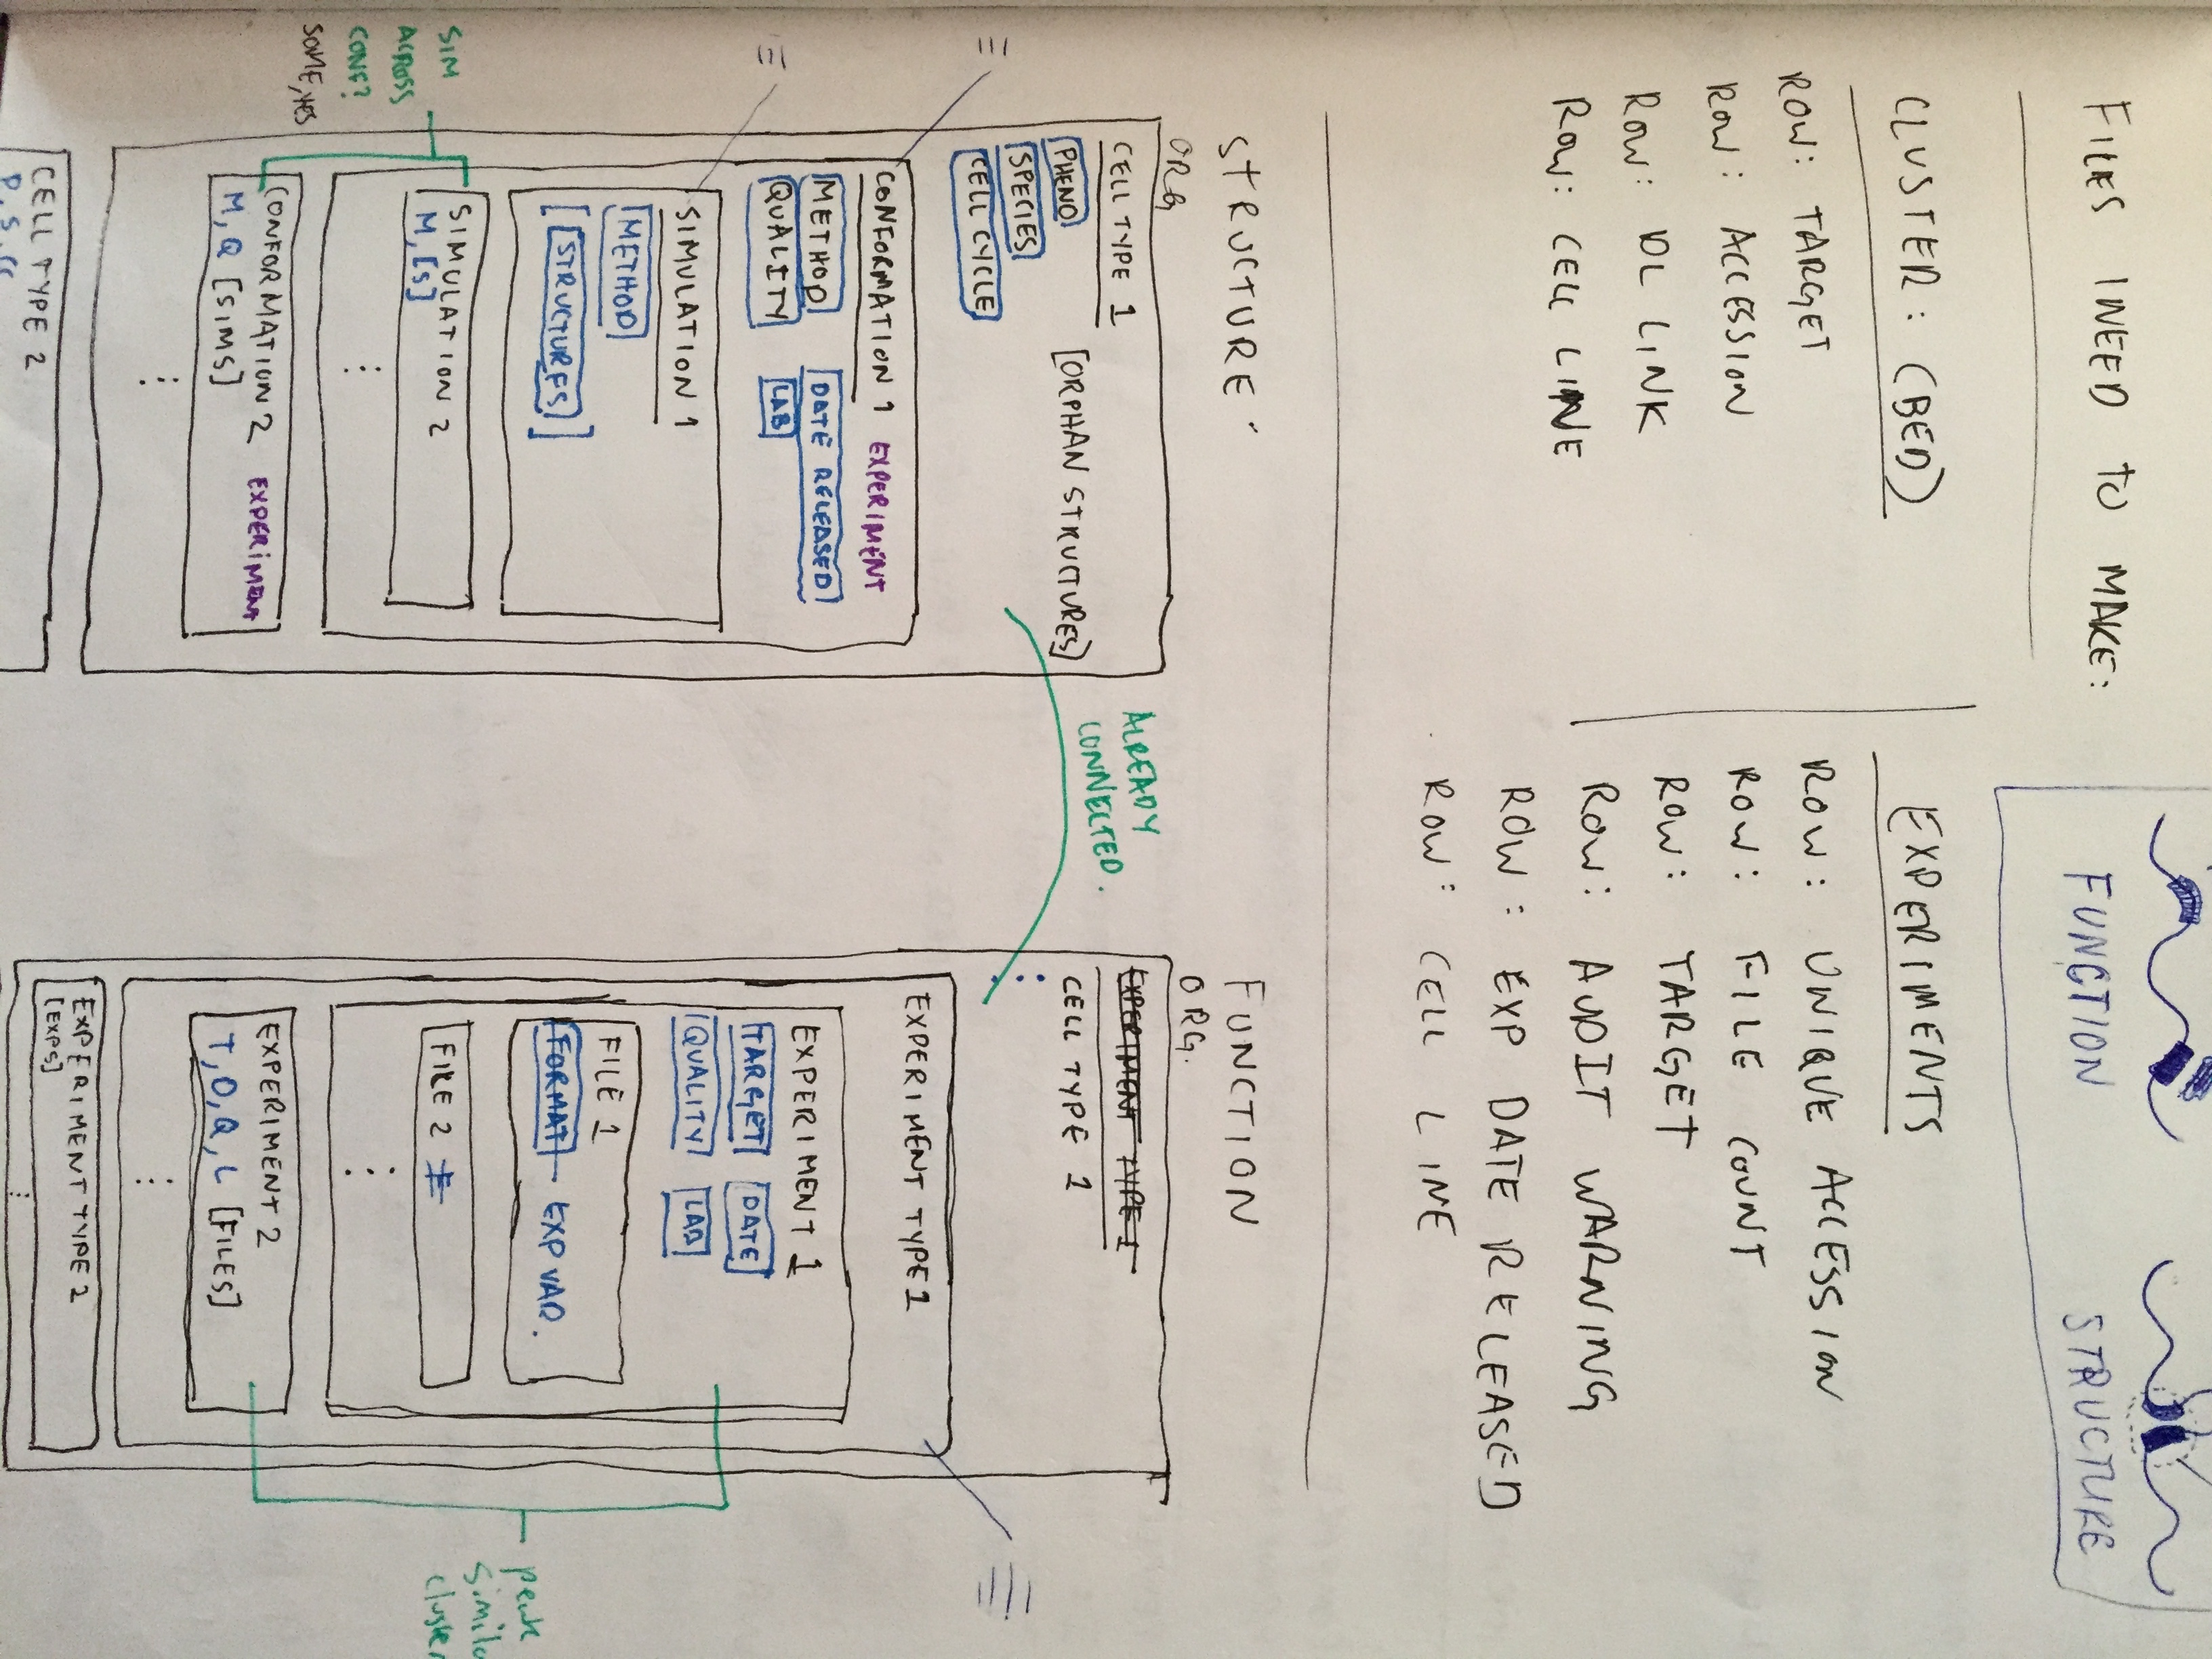 FILES I NEED TO MAKE:
FUNCTION
STRUCTURE
CLUSTER: (BED)
ROW: TARGET
ROW: ACCESSION
ROW: DL LINK
ROW: CELL LINE
EXPERIMENTS
ROW: UNIQUE ACCESSION
ROW: FILE COUNT
ROW: TARGET
ROW: AUDIT WARNING
ROW: EXP DATE RELEASED
ROW: CELL LINE
STRUCTURE
ORG
CELL TYPE 1
PHENO
[ORPHAN STRUCTURES]
SPECIES
CELL CYCLE
CONFORMATION 1 EXPERIMENT
METHOD DATE RELEASED
QUALITY LAB
SIMULATION 1
METHOD
[STRUCTURES]
SIMULATION 2
M, [S]
⋮
CONFORMATION 2 EXPERIMENT
M, Q [SIMS]
⋮
CELL TYPE 2
P, S, CC
SIM
ACROSS
CONF?
SOME, YES
ALREADY
CONNECTED.
FUNCTION
ORG.
EXPERIMENT TYPE 1
CELL TYPE 1
EXPERIMENT TYPE 1
EXPERIMENT 1
TARGET DATE
QUALITY LAB
FILE 1
FORMAT - EXP VAR.
FILE 2
⋮
EXPERIMENT 2
T, D, Q, L [FILES]
⋮
EXPERIMENT TYPE 2
[EXPS]
⋮
peak